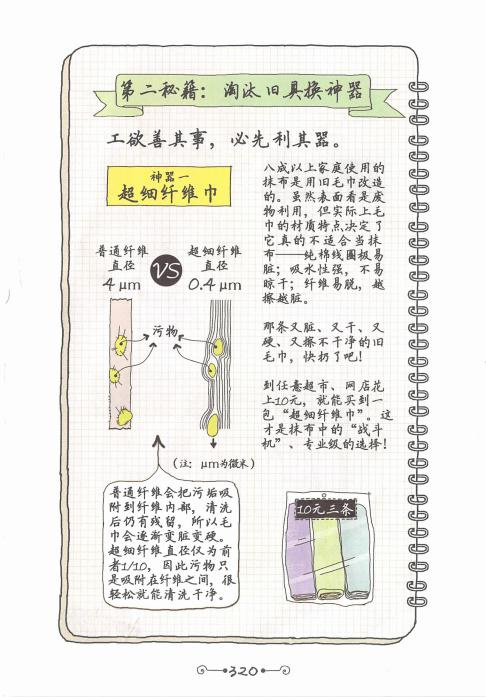 第二秘籍：淘汰旧具换神器
工欲善其事，必先利其器。
神器一
超细纤维巾
普通纤维
直径
4 μm
VS
超细纤维
直径
0.4 μm
污物
（注：μm为微米）
普通纤维会把污垢吸
附到纤维内部，清洗
后仍有残留，所以毛
巾会逐渐变脏变硬。
超细纤维直径仅为前
者1/10，因此污物只
是吸附在纤维之间，很
轻松就能清洗干净。
八成以上家庭使用的
抹布是用旧毛巾改造
的。虽然表面看是废
物利用，但实际上毛
巾的材质特点决定了
它真的不适合当抹
布——纯棉线圈极易
脏；吸水性强，不易
晾干；纤维易脱，越
擦越脏。
那条又脏、又干、又
硬、又擦不干净的旧
毛巾，快扔了吧！
到任意超市、网店花
上10元，就能买到一
包“超细纤维巾”。这
才是抹布中的“战斗
机”、专业级的选择！
10元三条
320